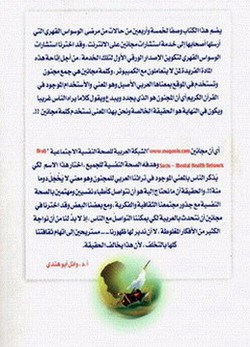 يضم هذا الكتاب وصفا لخمسة وأربعين من حالات من مرضى الوسواس القهري التي
أرسلها أصحابها إلى خدمة استشارات مجانين على الانترنت. وقد اخترنا استشارات
الوسواس القهري لتكوين الإصدار الورقي الأول لتلك الخدمة، من أجل إتاحة هذه
المادة الفريدة لمن لا يتعاملون مع الكمبيوتر. وكلمة مجانين هي جمع مجنون
وتستخدم في الموقع بمعناها العربي الأصيل وهو المعنى والاستخدام الموجود في
القرآن الكريم أي أن المجنون هو الذي يجدد ويبدع ويقول كلاما يراه الناس غريبا
ويكون في النهاية هو الحقيقة الخالصة ونحن بهذا المعنى نستخدم كلمة مجانين !!
أي أن مجانين www.maganin.com "الشبكة العربية للصحة النفسية الاجتماعية" Arab
Socio - Mental Health Network وهدفه الصحة النفسية للجميع، اختار هذا الاسم لكي
يذكر الناس بالمعنى الموجود في تراثنا العربي للمجنون وهو معنى لا يخجل دوما
منه!!، والحقيقة أن ما نحتاج إليه هو أن نتواصل كأطباء نفسيين ومهتمين بالصحة
النفسية مع جذور مجتمعنا الثقافية والفكرية، ومع بعضنا البعض وقد اخترنا في
مجانين أن نتحدث بالعربية لكي يمكننا التواصل مع الناس، إذ لابد لنا من أن نواجه
الكثير من الأفكار المغلوطة، لا أن ندير لها ظهورنا ..... مستريحين إلى اتهام ثقافتنا
كلها بالتخلف، لأن هذا يخالف الحقيقة.
أ.د. وائل أبو هندي